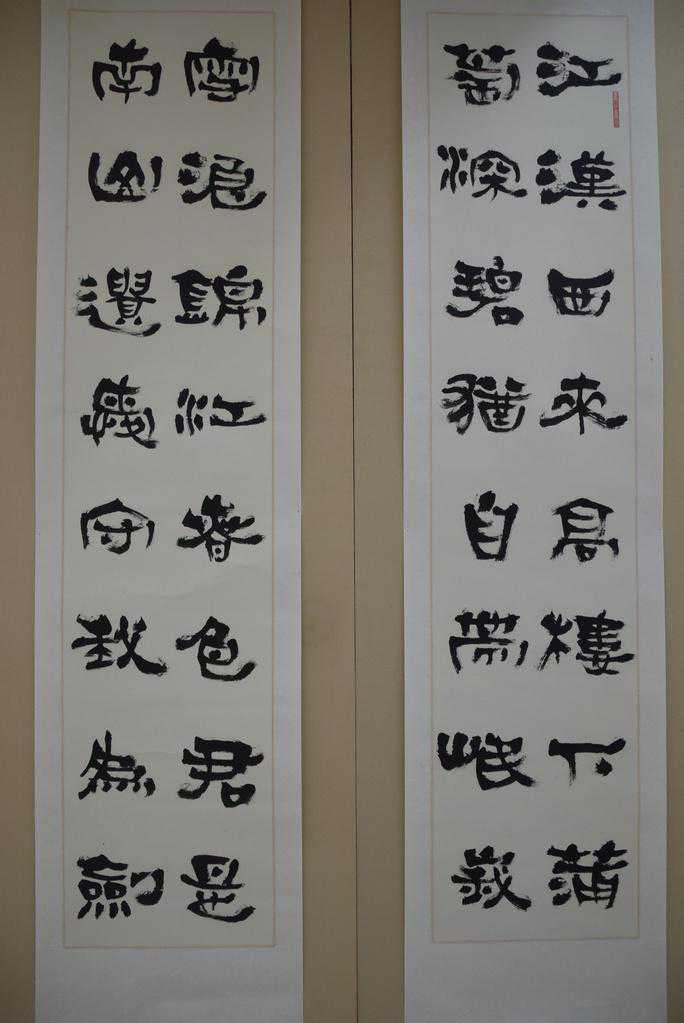 江漢西來高樓下蒲
萄深碧猶自帶岷峩
雪浪錦江春色君是
南山遺愛守我為劍